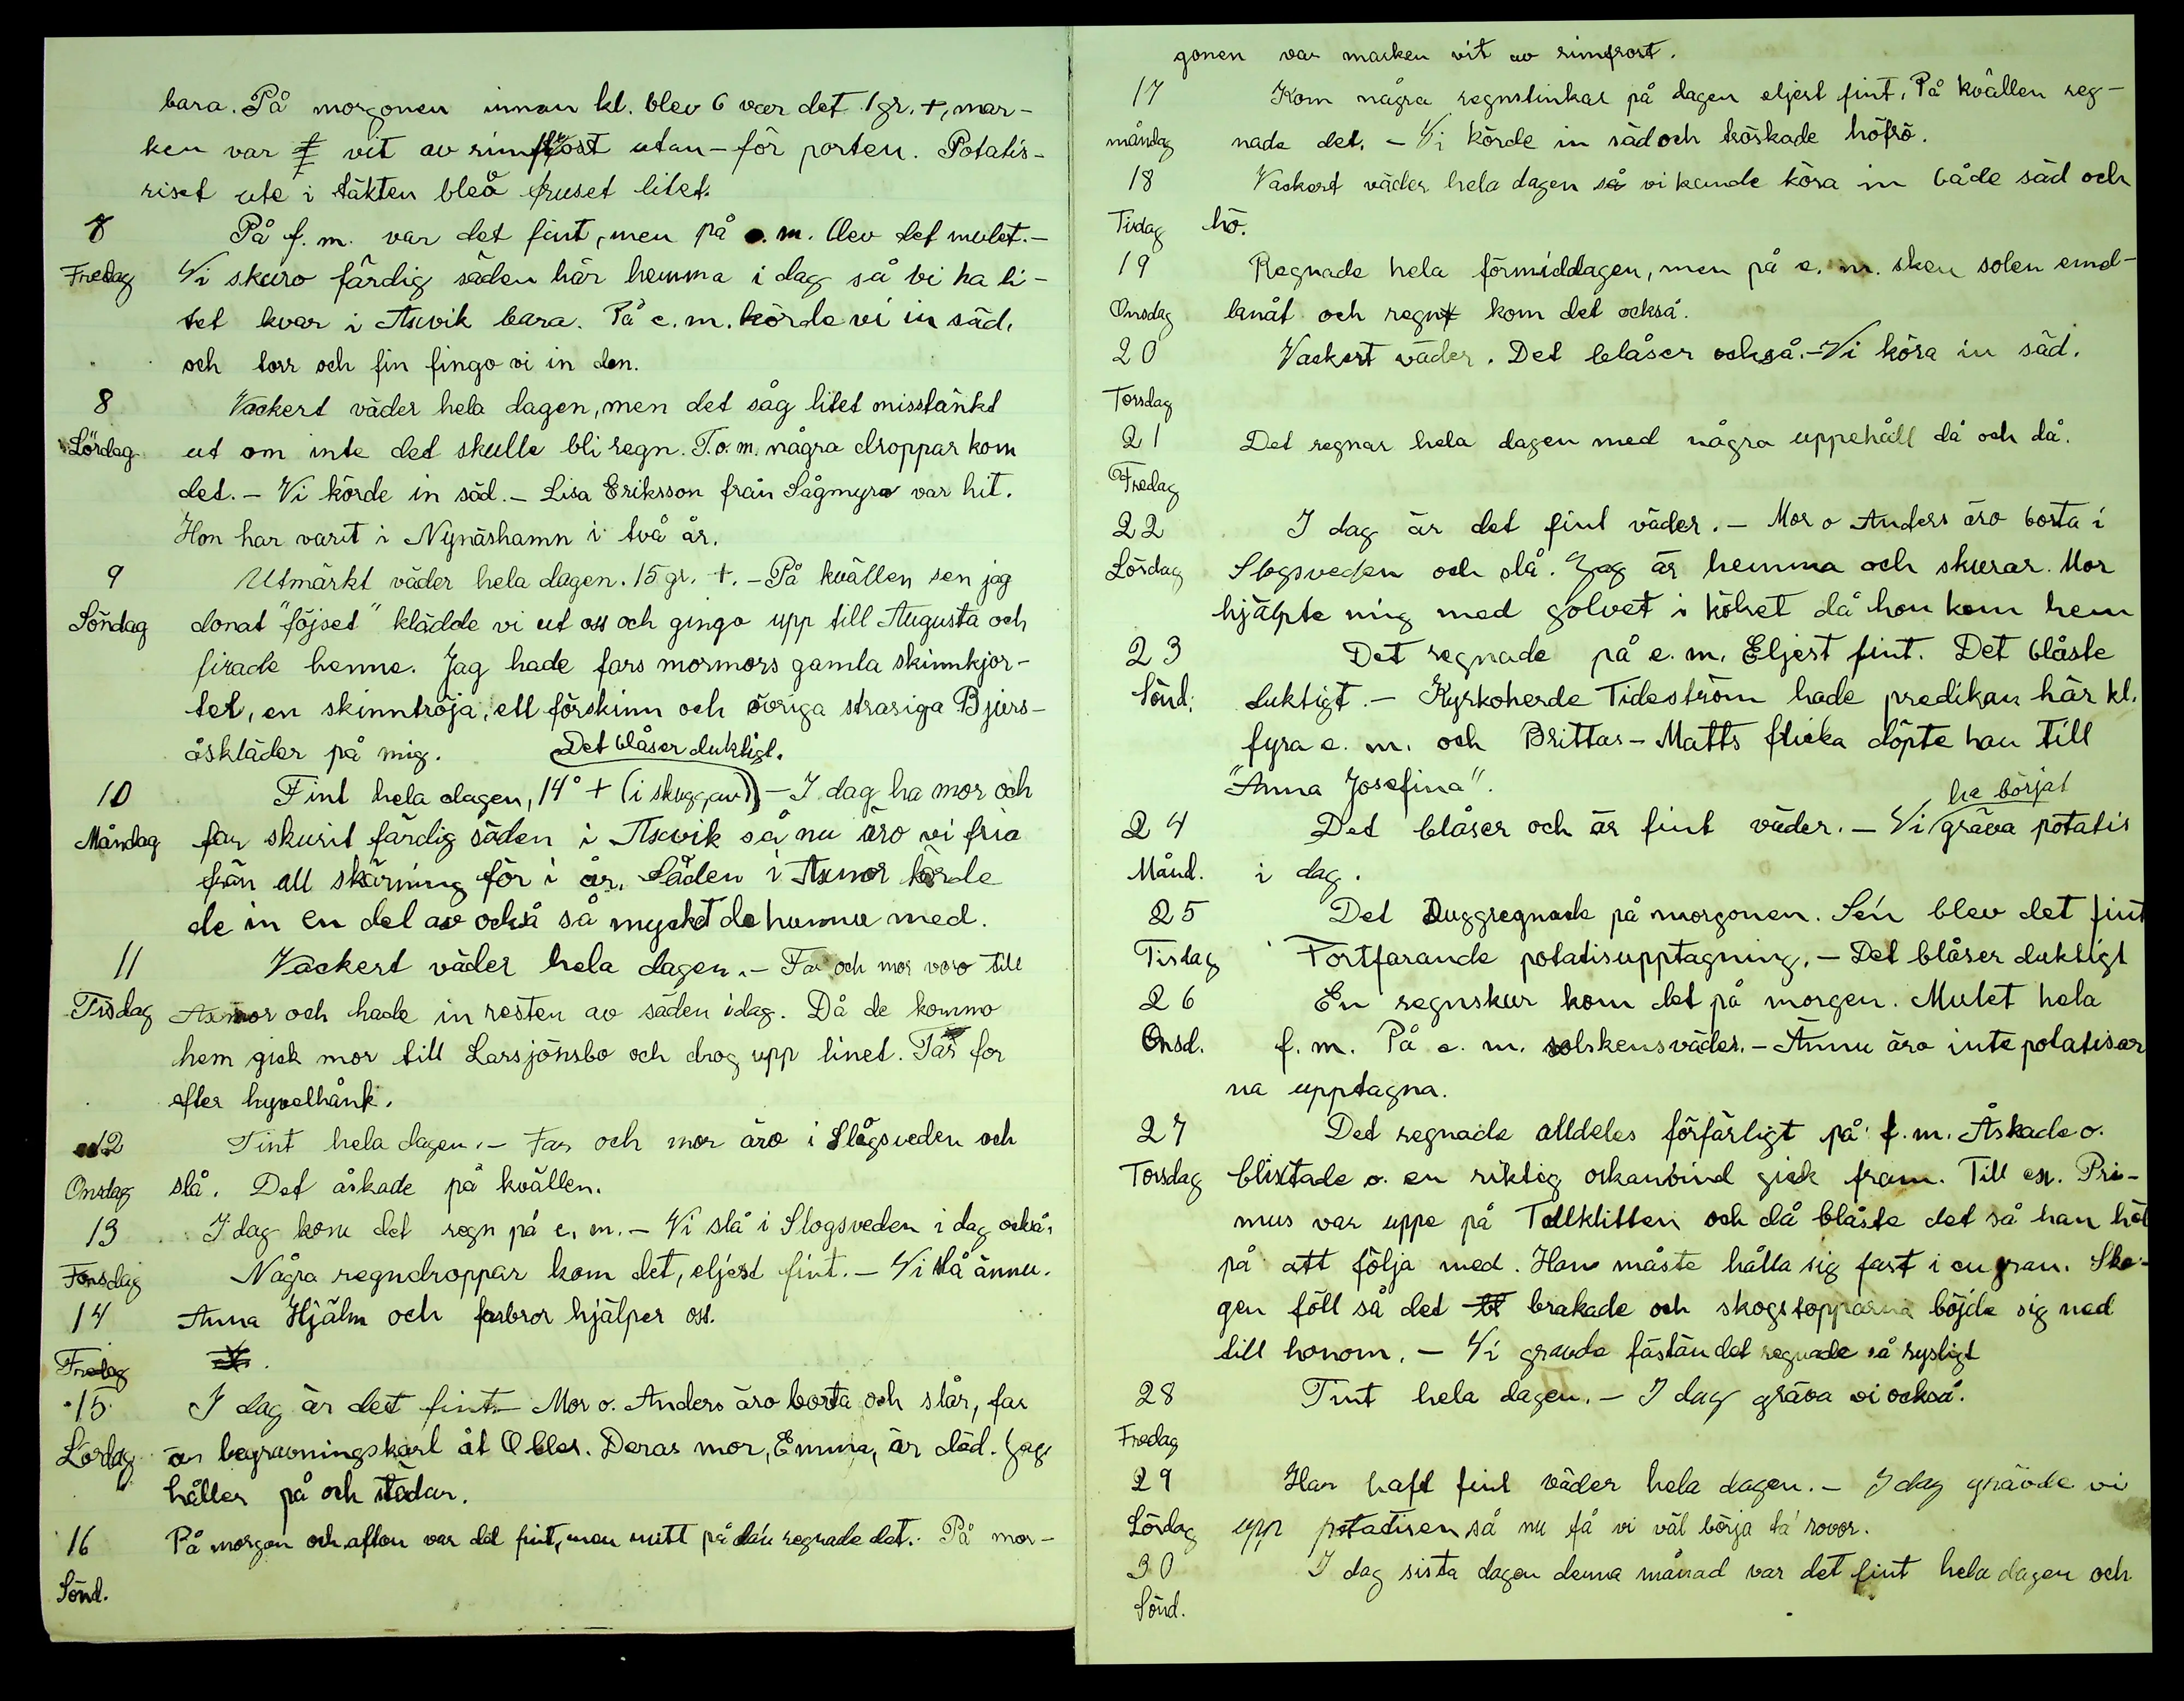 bara. På morgonen innan kl. blev 6 var det 1 gr. +, mar-
ken var vit av rimfrost utan-för porten. Potatis-
riset ute i täkten blev fruset litet.
7 På f. m. var det fint, men på e. m. blev det mulet. -
Fredag Vi skuro färdig säden här hemma i dag så vi ha li-
tet kvar i Axvik bara. På e. m. körde vi in säd,
och torr och fin fingo vi in den.
8 Vackert väder hela dagen, men det såg litet misstänkt
Lördag ut om inte det skulle bli regn. T. o. m. några droppar kom
det. - Vi körde in säd. - Lisa Eriksson från Sågmyra var hit.
Hon har varit i Nynäshamn i två år.
9 Utmärkt väder hela dagen. 15 gr. +. - På kvällen sen jag
Söndag donat "föjset" klädde vi ut oss och gingo upp till Augusta och
firade henne. Jag hade fars mormors gamla skinnkjor-
tel, en skinntröja, ett förskinn och övriga strasiga Bjurs-
åskläder på mig. Det blåser duktigt.
10 Fint hela dagen, 14° + (i skuggan) - I dag ha mor och
Måndag far skurit färdig säden i Axvik så nu äro vi fria
från all skärning för i år. Säden i Axmor körde
de in en del av också så myckt de hunnu med.
11 Vackert väder hela dagen. - Far och mor voro till
Tisdag Axmor och hade in resten av säden idag. Då de kommo
hem gick mor till Larsjönsbo och drog upp linet. Far for
efter hyvelhånk.
12 Fint hela dagen. - Far och mor äro i Slogsveden och
Onsdag slå. Det åskade på kvällen.
13 I dag kom det regn på e. m. - Vi slå i Slogsveden i dag också.
Torsdag Några regndroppar kom det, eljest fint. - Vi slå ännu.
14 Anna Hjälm och farbror hjälper oss.
Fredag
15 I dag är det fint. - Mor o. Anders äro borta och slår, far
Lördag är begravningskarl åt Obles. Deras mor, Emma, är död. Jag
håller på och städar.
16 På morgon och afton var det fint, men mitt på da'n regnade det. På mor-
Sönd.
gonen var marken vit av rimfrost.
17 Kom några regnstinkar på dagen eljest fint. På kvällen reg-
måndag nade det. - Vi körde in säd och tröskade höfrö.
18 Vackert väder hela dagen så vi kunde köra in både säd och
Tisdag hö.
19 Regnade hela förmiddagen, men på e. m. sken solen emel-
Onsdag lanåt och regn kom det också.
20 Vackert väder. Det blåser också. - Vi köra in säd.
Torsdag
21 Det regnar hela dagen med några uppehåll då och då.
Fredag
22 I dag är det fint väder. - Mor o Anders äro borta i
Lördag Slogsveden och slå. Jag är hemma och skurar. Mor
hjälpte mig med golvet i köket då hon kom hem
23 Det regnade på e. m. Eljest fint. Det blåste
Sönd. duktigt. - Kyrkoherde Tideström hade predikan här kl.
fyra e. m. och Brittas-Matts flicka döpte han till
"Anna Josefina".
ha börjat
24 Det blåser och är fint väder. - Vi gräva potatis
Månd. i dag.
25 Det Duggregnade på morgonen. Se'n blev det fint
Tisdag Fortfarande potatisupptagning. - Det blåser duktigt
26 En regnskur kom det på morgen. Mulet hela
Onsd. f. m. På e. m. solskensväder. - Ännu äro inte potatisar
na upptagna.
27 Det regnade alldeles förfärligt på f. m. Åskade o.
Torsdag blixtade o. en riktig orkanvind gick fram. Till ex. Pri-
mus var uppe på Tallklitten och då blåste det så han höl
på att följa med. Han måste hålla sig fast i en gran. Sko-
gen föll så det brakade och skogstopparna böjde sig ned
till honom. - Vi gravde fästän det regnade så rysligt
28 Fint hela dagen. - I dag gräva vi också.
Fredag
29 Har haft fint väder hela dagen. - I dag grävde vi
Lördag upp potatisen så nu få vi väl börja ta' rovor.
30 I dag sista dagen denna månad var det fint hela dagen och
Sönd.